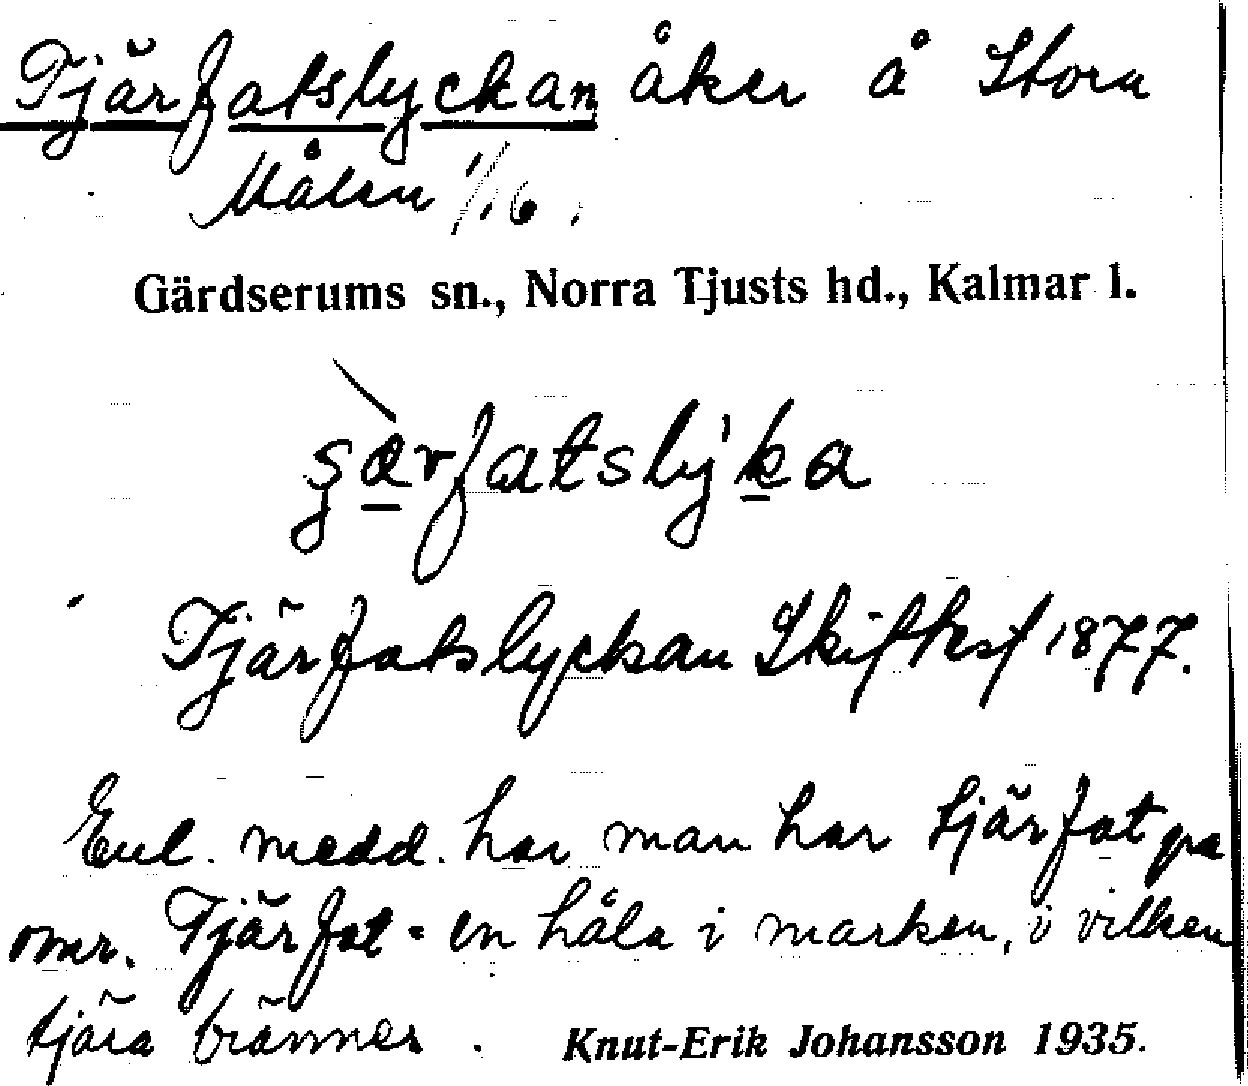 Tjärfatslyckan åker å Stora
Målen 1/16.
Gärdserums sn., Norra Tjusts hd., Kalmar l.
Tjärfatslyckan Skifteskf 1877.
Enl. medd. har man har tjärfat på
omr. Tjärfat = en håla i marken, i vilken
tjära brännes.
Knut-Erik Johansson 1935.